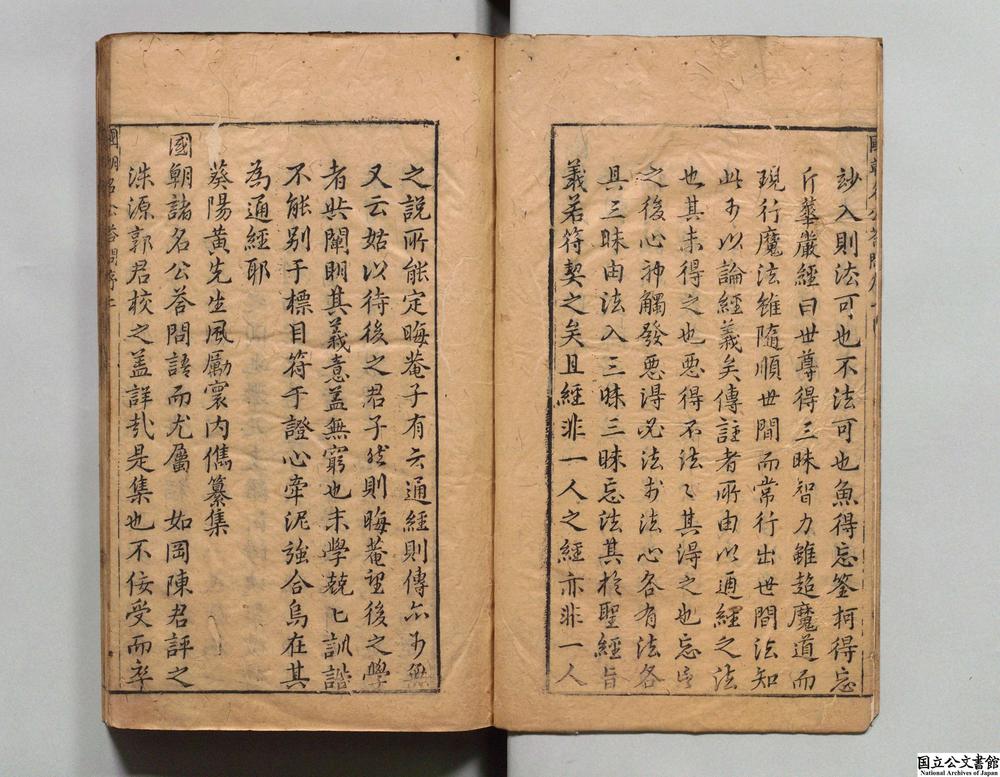 玅入則法可也不法可也魚得忘筌柯得忘
斤華嚴經曰世尊得三昧智力雖超魔道而
現行魔法雖隨順世間而常行出世間法知
此可以論經義矣傳註者所由以通經之法
也其未得之也惡得不法〻其得之也忘
之後心神觸發惡得必法於法心各有法各
具三昧由法入三昧三昧忘法其於聖經旨
義若符契之矣且經非一人之經亦非一人
之說所能定晦菴子有云通經則傳亦可無
又云姑以待後之君子然則晦菴望後之學
者與闡明其義意蓋無窮也末學兢〻訓詁
不能別于標目符于證心牽泥強合烏在其
為通經耶
葵陽黃先生風勵寰內儁纂集
國朝諸名公荅問語而尤屬如岡陳君評之
洙源郭君校之蓋詳哉是集也不佞受而卒
國朝名公荅問序二
国立公文書館
National Archives of Japan